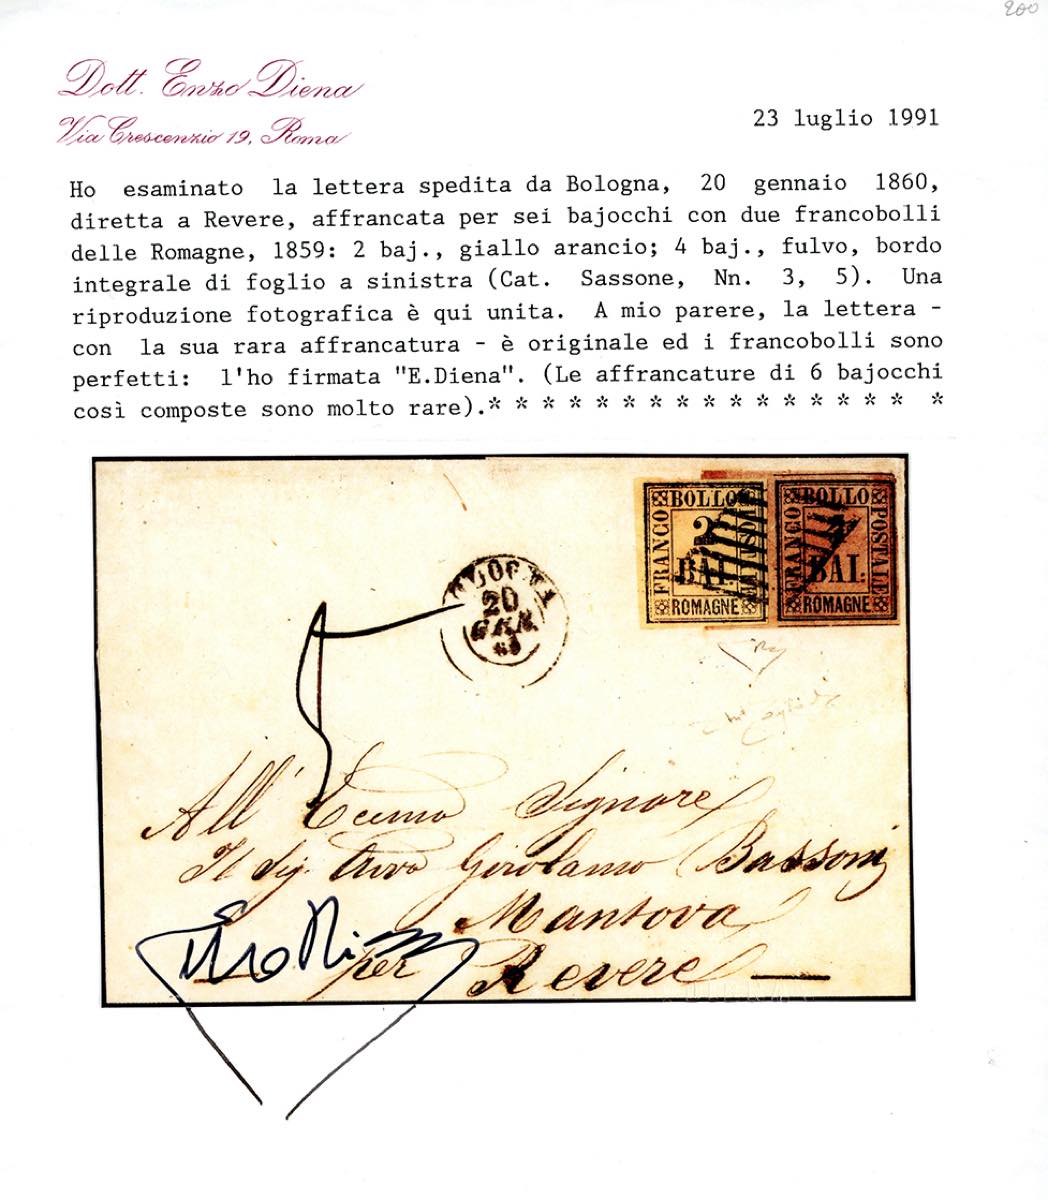 200
Dott. Enzo Diena
Via Crescenzio 19, Roma
23 luglio 1991
Ho esaminato la lettera spedita da Bologna, 20 gennaio 1860,
diretta a Revere, affrancata per sei bajocchi con due francobolli
delle Romagne, 1859: 2 baj., giallo arancio; 4 baj., fulvo, bordo
integrale di foglio a sinistra (Cat. Sassone, Nn. 3, 5). Una
riproduzione fotografica è qui unita. A mio parere, la lettera -
con la sua rara affrancatura - è originale ed i francobolli sono
perfetti: l'ho firmata "E.Diena". (Le affrancature di 6 bajocchi
così composte sono molto rare).* * * * * * * * * * * * * * * * *
FRANCO BOLLO POSTALE
2
BAI.
ROMAGNE
FRANCO BOLLO POSTALE
4
BAI.
ROMAGNE
BOLOGNA
20
GEN.
60
All' Eccmo Signore
Il Sig. Avvo Girolamo Bassoni
Mantova
per Revere